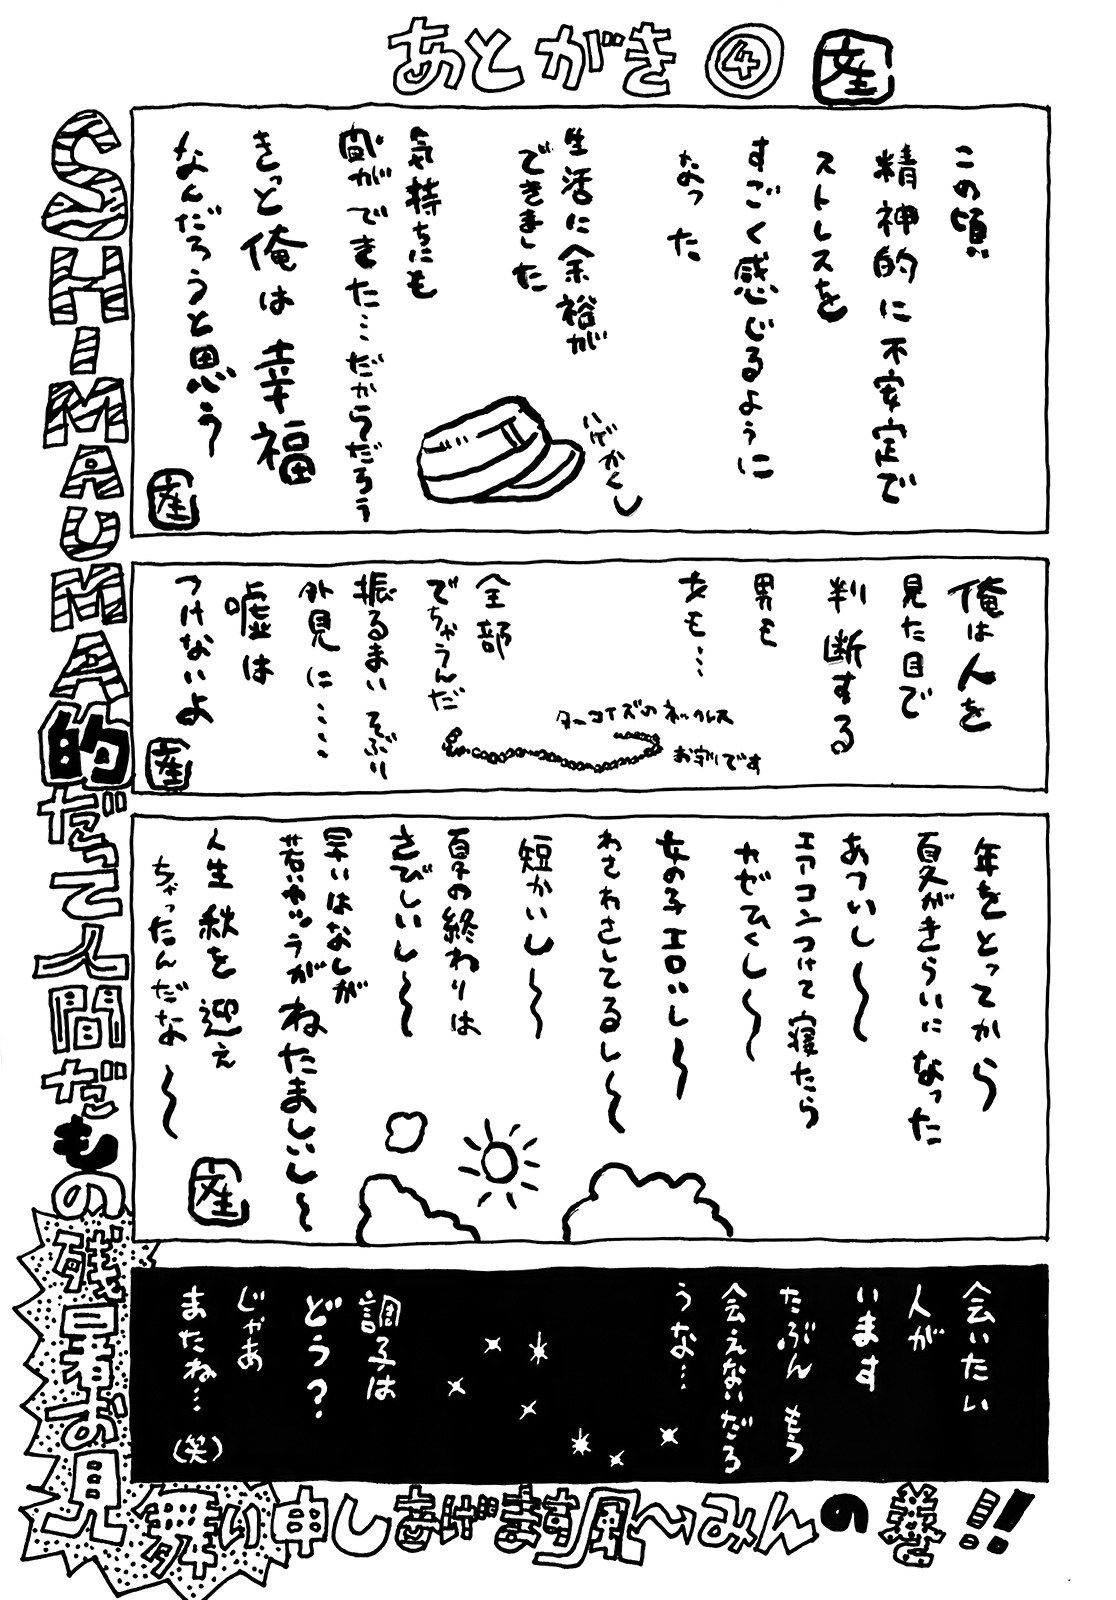 あとがき ④
この頃
精神的に不安定で
ストレスを
すごく感じるように
なった
生活に余裕が
できました
気持ちにも
間ができました…だからだろう
きっと俺は幸福
なんだろうと思う
いげかくし
俺は人を
見た目で
判断する
男も
女も…
全部
でちゃうんだ
振るまいそぶり
外見に……
嘘は
つけないよ
ターコイズのネックレス
お守りです
年をとってから
夏がきらいになった
あついし〜
エアコンつけて寝たら
カゼひくし〜
女の子エロいし〜
わさわさしてるし〜
短かいし〜
夏の終わりは
さびしいし〜
早いはなしが
若いヤツラがねたましいし〜
人生秋を迎え
ちゃったんだな〜
会いたい
人が
います
たぶん もう
会えないだろ
うな…
調子は
どう?
じゃあ
またね…(笑)
SHIMAUMA的だって人間だもの残暑お見
舞い申しあげます風〜みんの巻!!